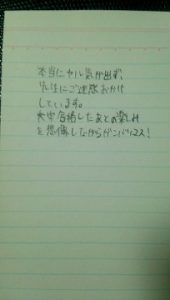 本当にヤル気が出ず、
先生にご迷惑おかけ
しています。
大学合格したあとの楽しみ
を想像しながらガンバリマス!